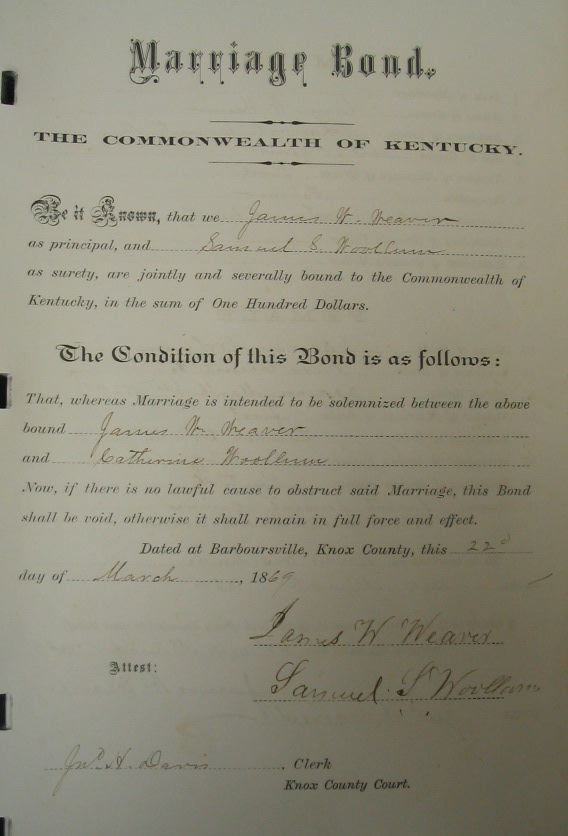 Marriage Bond.
THE COMMONWEALTH OF KENTUCKY.
Be it Known, that we James W. Weaver
as principal, and Samuel S Woollum
as surety, are jointly and severally bound to the Commonwealth of
Kentucky, in the sum of One Hundred Dollars.
The Condition of this Bond is as follows:
That, whereas Marriage is intended to be solemnized between the above
bound James W. Weaver
and Catherine Woollum
Now, if there is no lawful cause to obstruct said Marriage, this Bond
shall be void, otherwise it shall remain in full force and effect.
Dated at Barboursville, Knox County, this 22d
day of March, 1869
James W Weaver
Attest:
Samuel S Woollum
Jno. A. Davis, Clerk
Knox County Court.